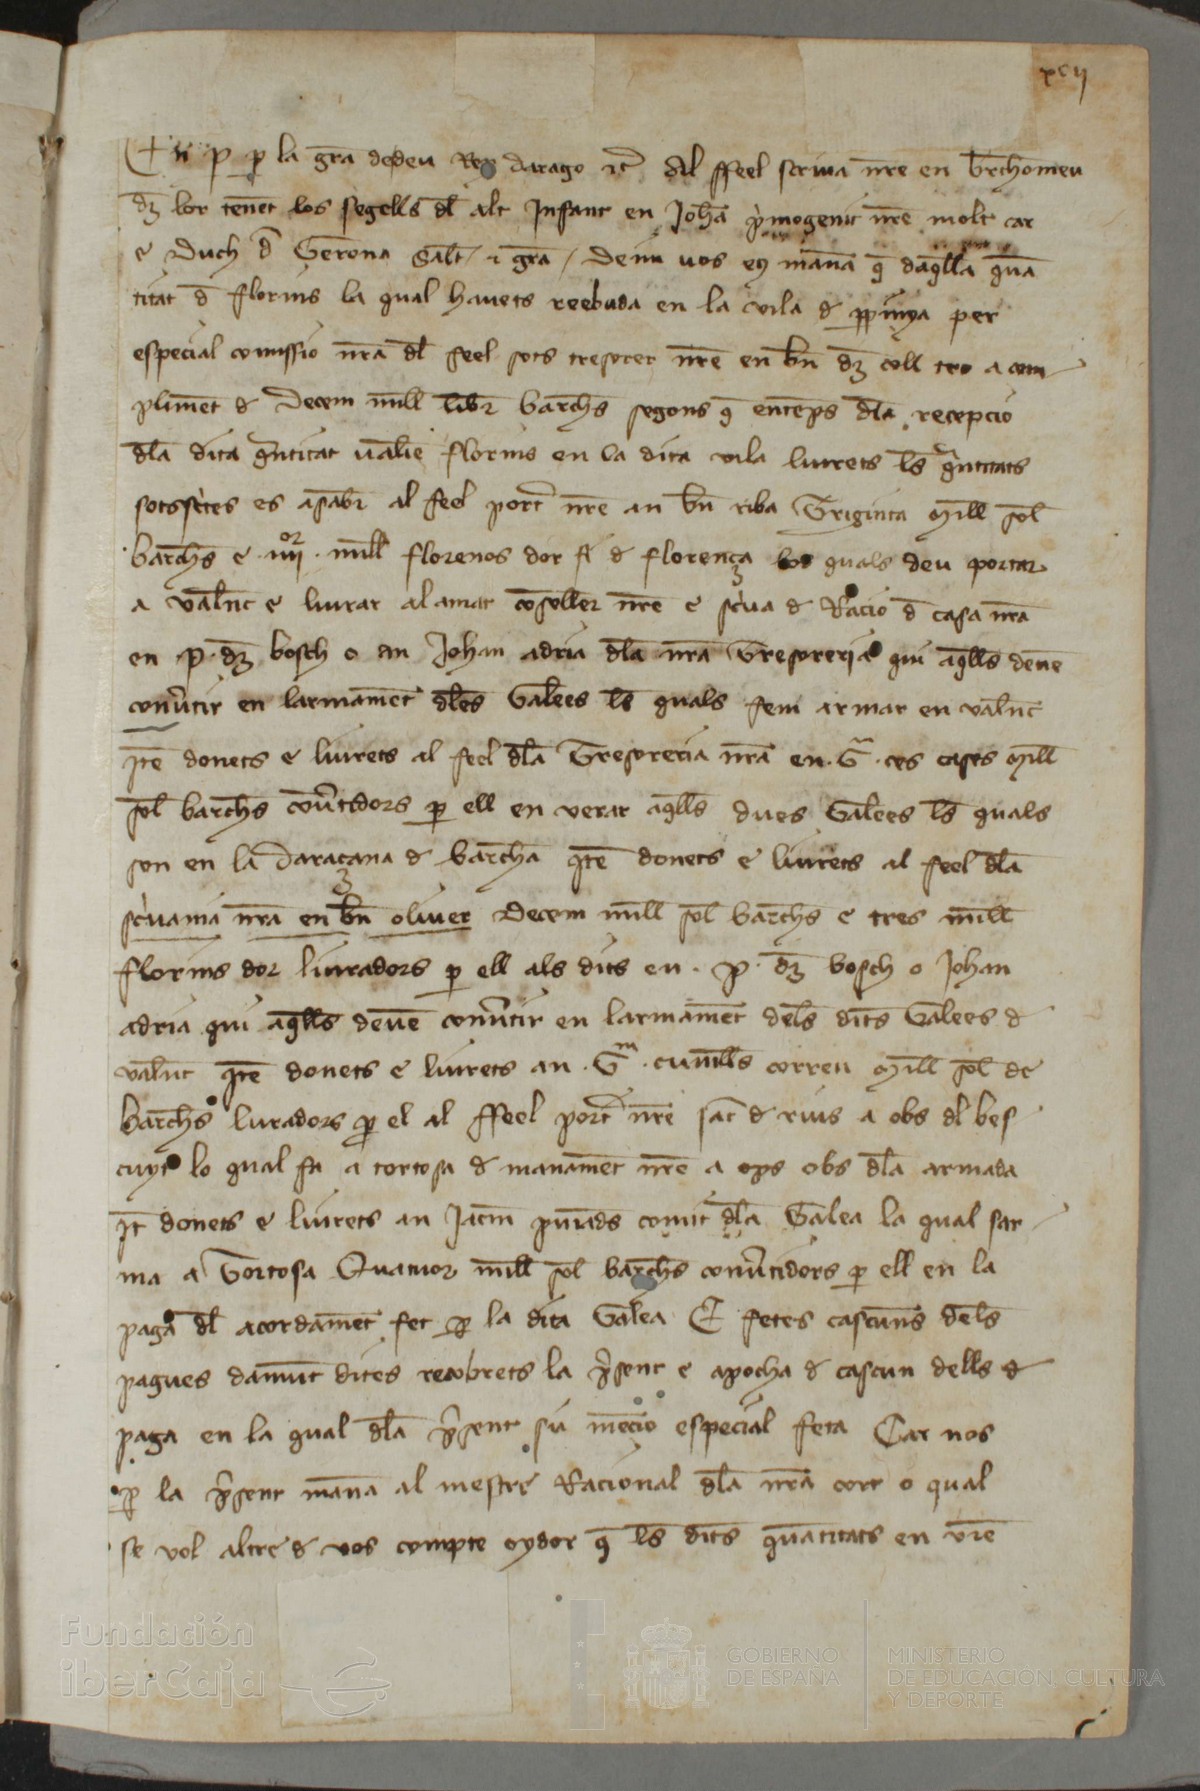 xcij
En P p la gra dedeu Rey darago etc Al ffeel scriua nre en brthomeu
dz lor tenent los segells dl alt Infant en Joha pmogenit nre molt car
e Duch d Gerona Salt e gra Deim uos ey mana q daqlla quan
titat d florins la qual hauets reebuda en la vila d ppinya per
especial comissio nra dl feel sots tresorer nre en bn dz coll tro a com
pliment d Decem mill libr barchs segons q enteps dla recepcio
dla dita quntitat ualie florins en la dita vila liurets ls quntitats
sotsscrites es asabr al feel port nre an bn riba Triginta mill sol
barchs e iiii or mill florenos dor fi d florença los quals deu portar
a valenc e liurar al amat coseller nre e scriua d Racio d casa nra
en P dz bosch o an Johan adria dla nra Tresoreria qui aqlls deuen
conutir en larmament dles Galees ls quals fem armar en valenc
Ite donets e liurets al feel dla Tresoreria nra en G ces cases mill
sol barchs conutidors p ell en verar aqlls dues Galees ls quals
son en la Daraçana d barcha Ite donets e liurets al feel dla
scriuania nra en bn oliuer Decem mill sol barchs e tres mill
florins dor liuradors p ell als dits en P dz bosch o Johan
adria qui aqlls deuen conutir en larmament dels dits Galees d
valenc Ite donets e liurets an G m cunills correu mill sol de
barchs luradors p el al ffeel port nre sac d rius a obs dl bes
cuyt lo qual fa a tortosa d manament nre a ops obs dla armada
It donets e liurets an Jacm comit dla Galea la qual sar
ma a Tortosa Quatuor mill sol barchs conutidors p ell en la
paga dl acordament fet p la dita Galea E fetes cascuns dels
pagues damunt dites recobrets la psent e apocha d cascun dells d
paga en la qual dla psent sia mecio especial feta Car nos
p la psent mana al mestre Racional dla nra cort o qual
se vol altre d vos compte oydor q ls dits quantitats en vre
Fundación
iberCaja
GOBIERNO
DE ESPAÑA
MINISTERIO
DE EDUCACIÓN, CULTURA
Y DEPORTE